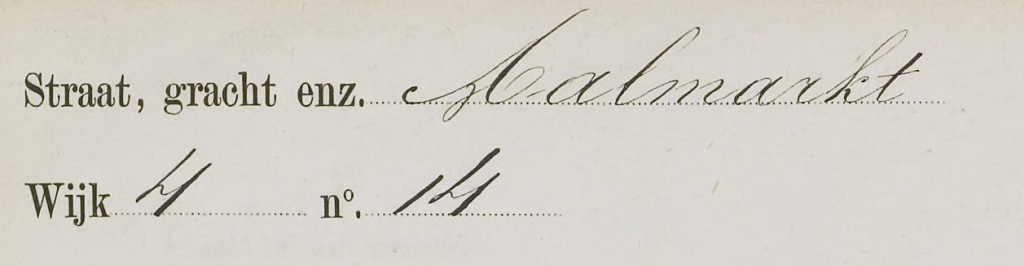 Straat, gracht enz. Aalmarkt
Wijk 4 no. 14